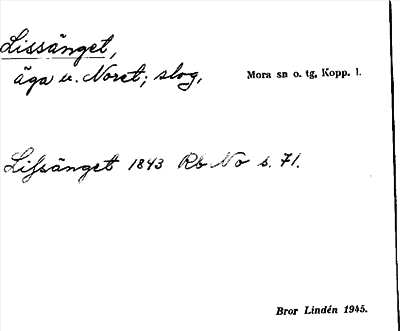 Lissänget,
äga u. Noret; slog,
Mora sn o. tg, Kopp. l.
Lissänget 1843 Rb No s. 71.
Bror Lindén 1945.